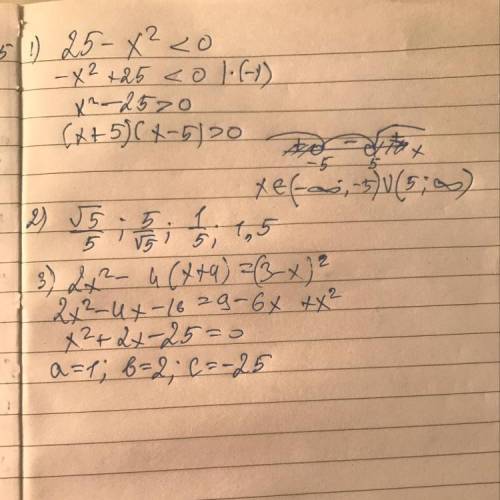 5 1) 25 - x² < 0
-x² + 25 < 0 | · (-1)
x² - 25 > 0
(x+5)(x-5) > 0
-
-5 5 x
x ∈ (-∞; -5) ∪ (5; ∞)
2) √5/5 ; 5/√5 ; 1/5 ; 1,5
3) 2x² - 4(x+4) = (3-x)²
2x² - 4x - 16 = 9 - 6x + x²
x² + 2x - 25 = 0
a=1; b=2; c=-25